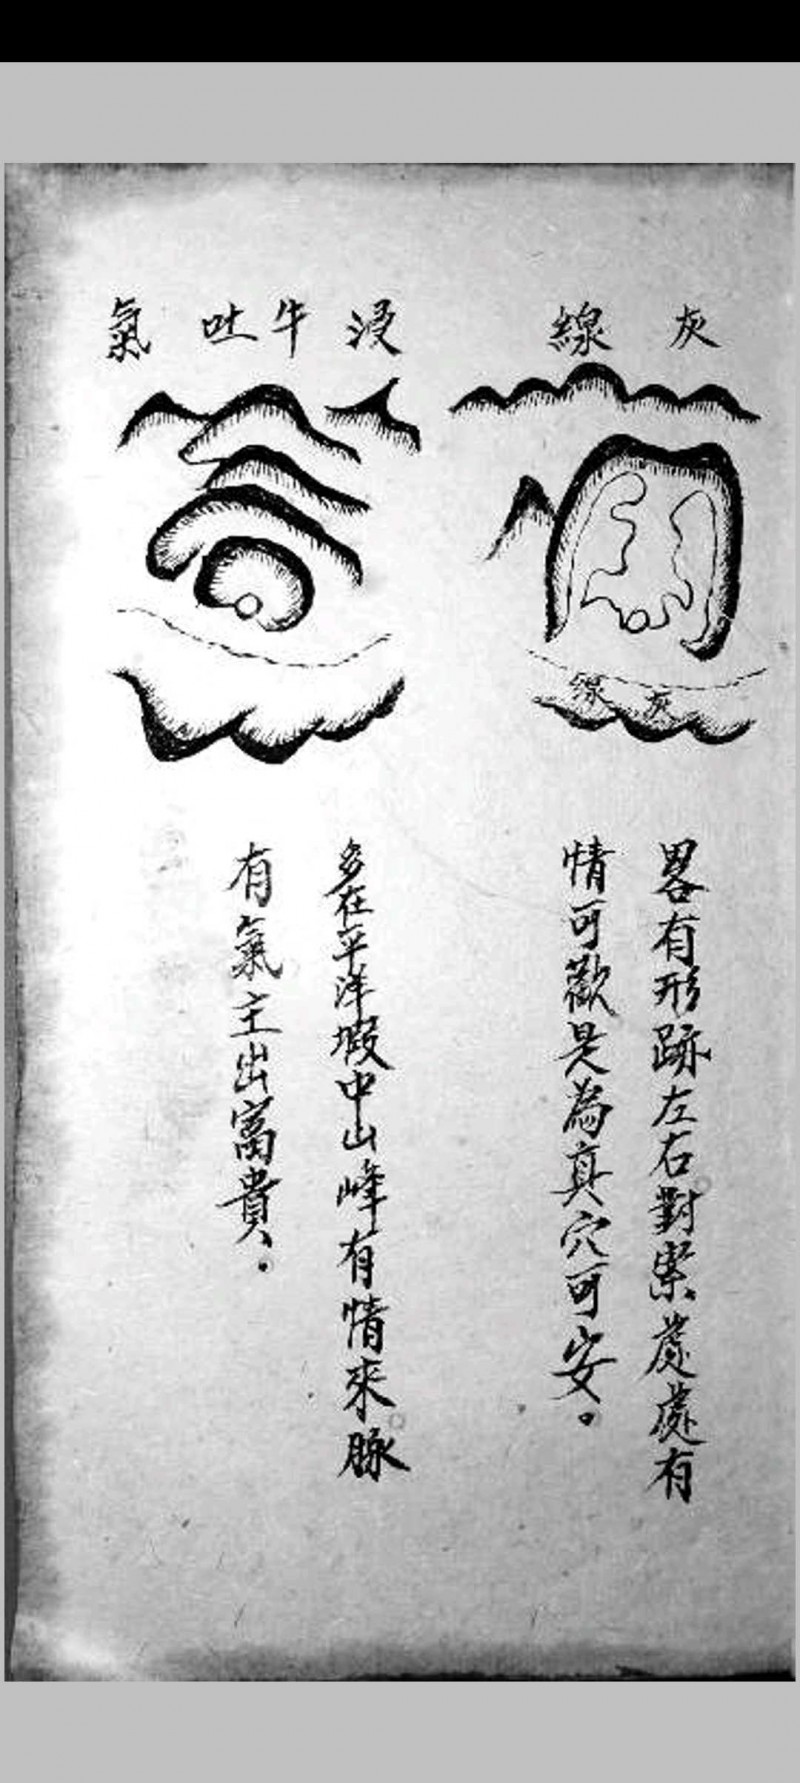 灰線
線灰
畧有形跡左右對案處處有
情可歡是為真穴可安。
浸牛吐氣
多在平洋塅中山峰有情來脉
有氣主出富貴。